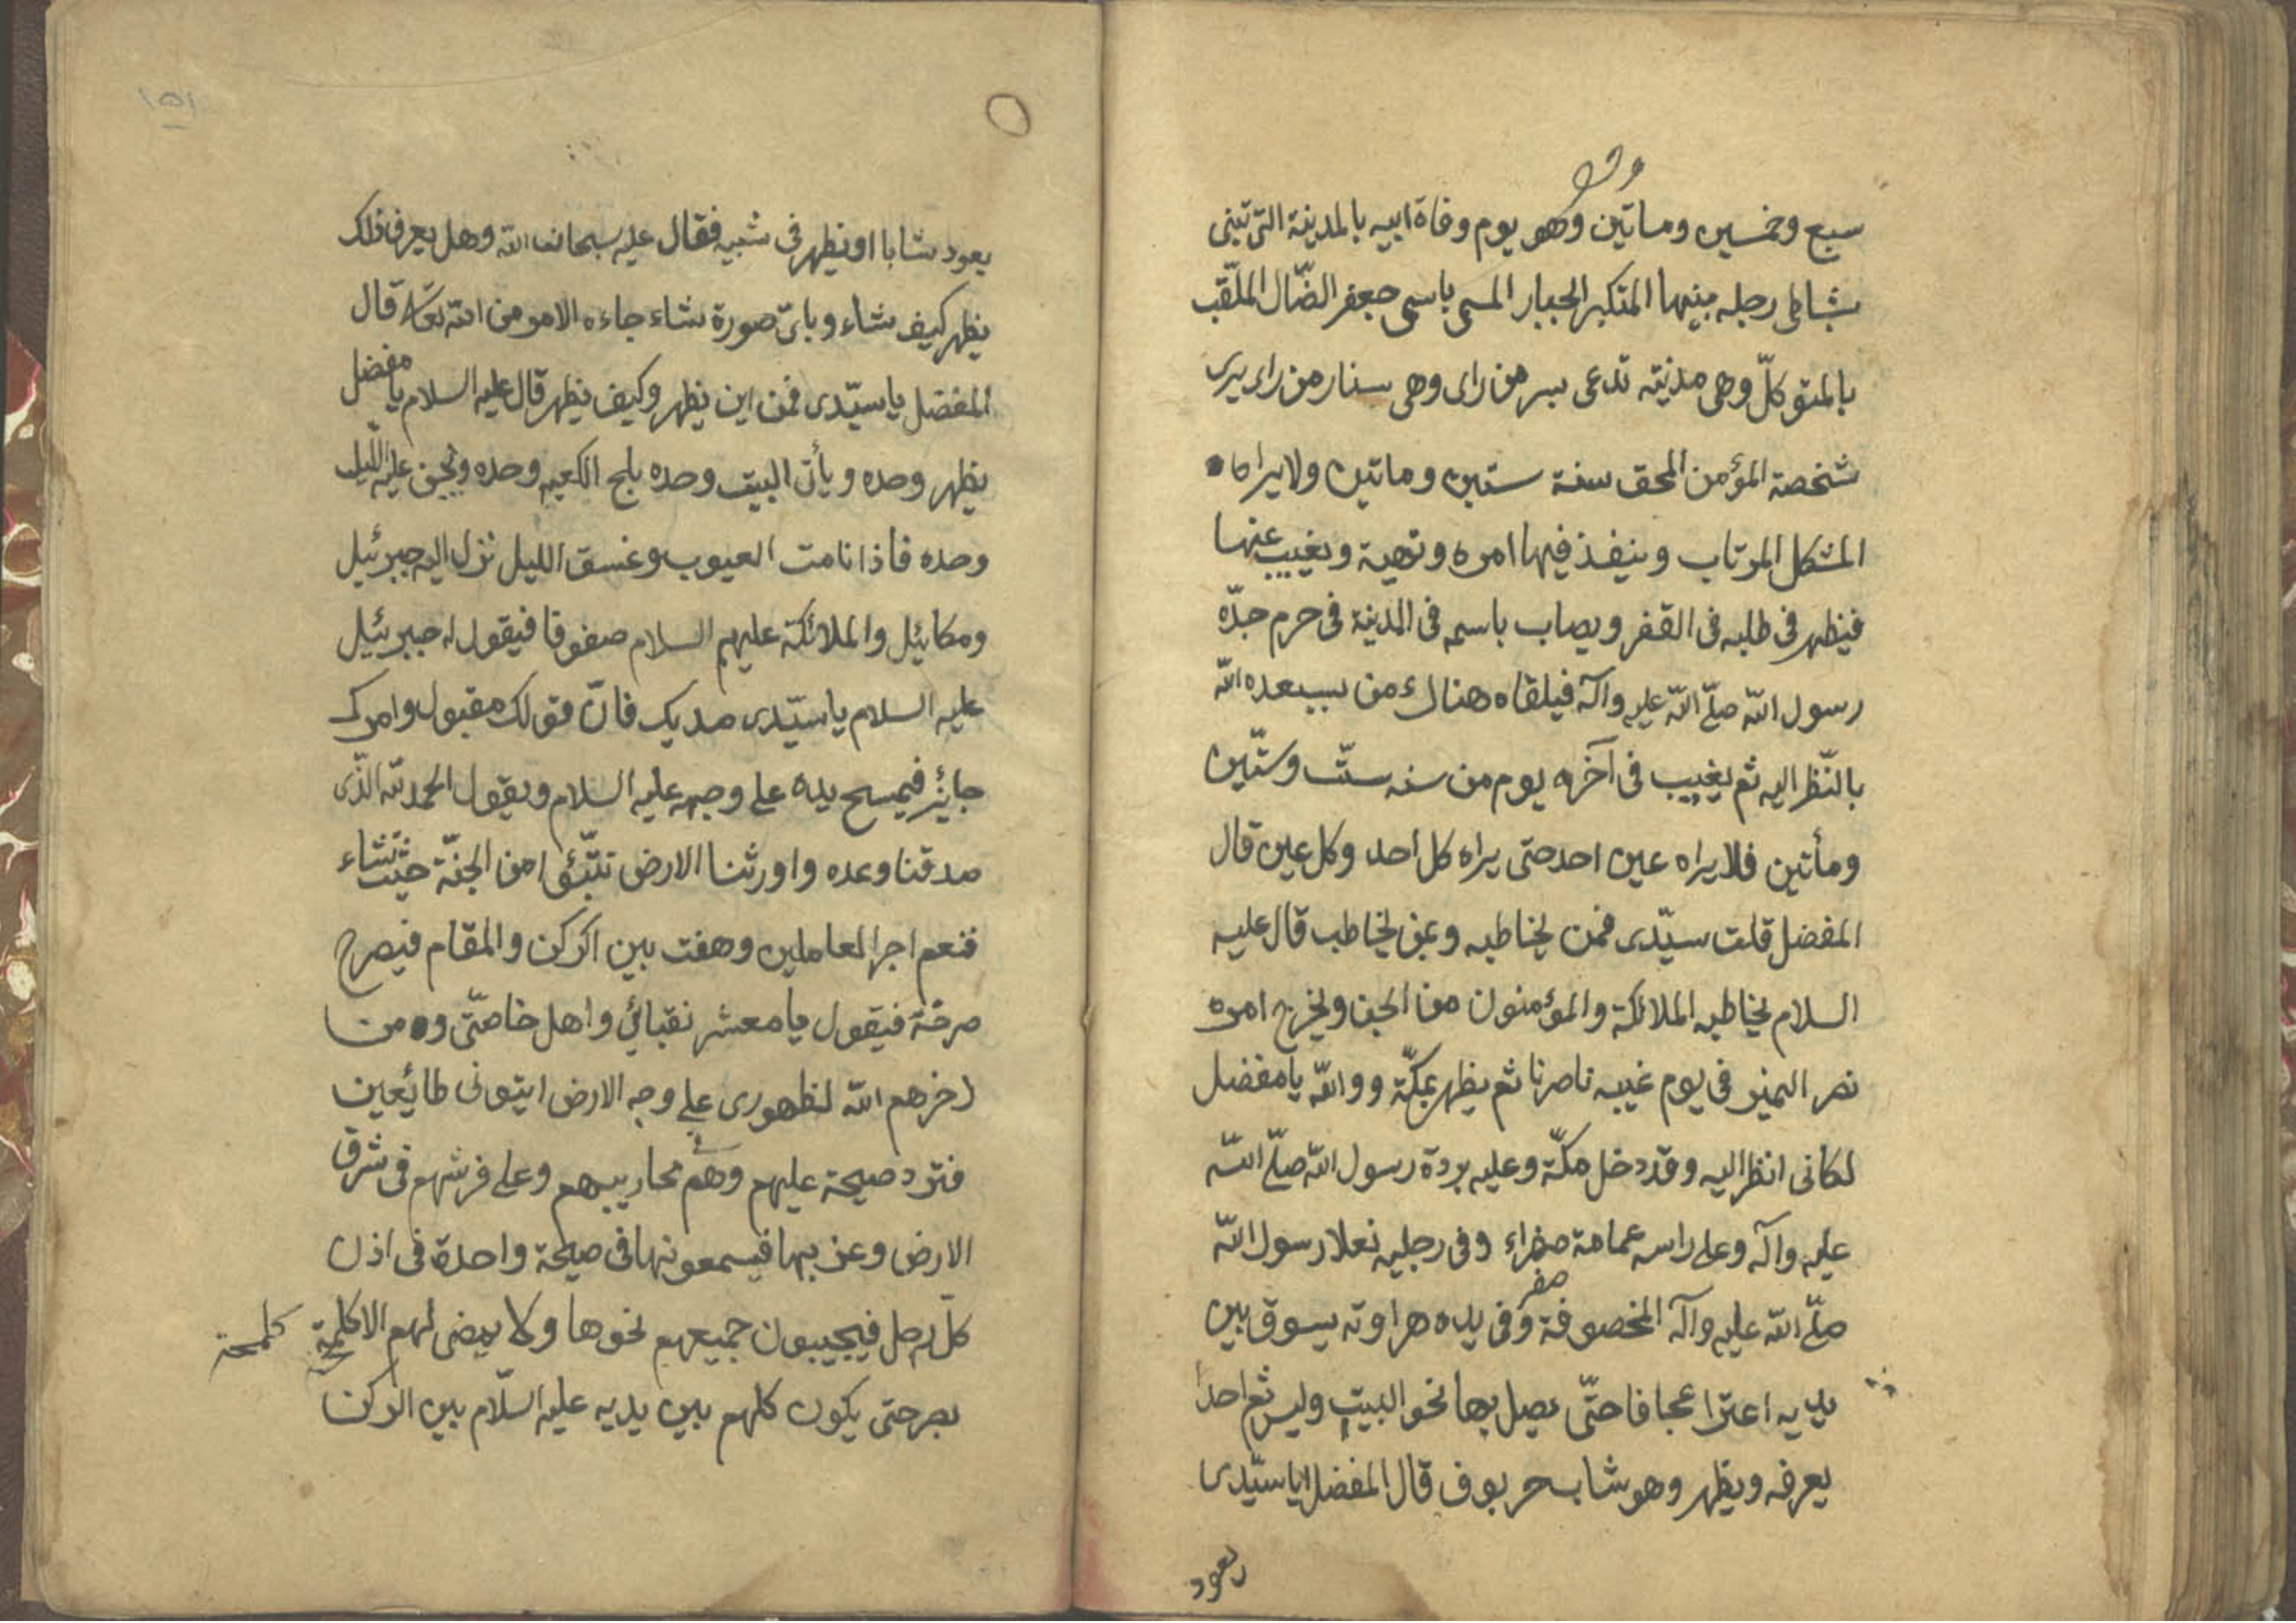 سبع وخمسين وماتين وهو يوم وفاة ابيه بالمدينة التى تبنى
بشاطى رجله يبنيها المتكبر الجبار المسمى باسمى جعفر الضّال الملقّب
بالمتوكلّ وهى مدينته تدعى بسر من راى وهى ستنار من راى يرى
شخصة المؤمن المحق سنة ستين وماتين ولا يراها
المشكل المرتاب وينفذ فيها امره ونهية ويغيب عنها
فيظهر فى طلبه فى القفر ويصاب باسمه فى المدينة فى حرم جدّه
رسول اللّه صلّى اللّه عليه وآله فيلقاه هناك من يسعده اللّه
بالنّظر اليه ثم يغيب فى آخره يوم من سنه ستّ وستّين
ومأتين فلا يراه عين احد حتى يراه كل احد وكل عين قال
المفضل قلت سيّدى فمن يخاطبه وعن يخاطب قال عليه
السلام يخاطبه الملائكة والمؤمنون من الجن ويخرج امره
نصر النميز فى يوم غيبه ناصرنا ثم يظهر بمكّة وواللّه يا مفضل
لكانى انظر اليه وقد دخل مكّة وعليه بردة رسول اللّه صلّى اللّه
عليه وآله وعلى راسه عمامة صفراء وفى رجليه نعلا رسول اللّه
صفر
صلّى اللّه عليه وآله المخصوفة وفى يده هراوته يسوق بين
يديه اعنزا عجافا حتّى يصل بها نحو البيت وليس ثم احداً
يعرفه ويظهر وهو شاب قال المفضل يا سيّدى
يعود
١٥١
يعود شابا او يظهر فى شيبه فقال عليه سبحان اللّه وهل يعرف ذلك
يظهر كيف شاء وباىّ صورة شاء جاءه الامر من اللّه تعالى قال
المفضل يا سيّدى فمن اين يظهر وكيف يظهر قال عليه السلام يا مفضل
يظهر وحده ويأتى البيت وحده يلج الكعبه وحده ويجن عليه الليل
وحده فاذا نامت العيوب وغسق الليل نزل اليه جبرئيل
ومكائيل والملائكة عليهم السلام صفوفا فيقول له جبرئيل
عليه السلام يا سيّدى مديك فانّ قولك مقبول وامرك
جايز فيمسح يده على وجهه عليه السلام ويقول الحمد للّه الذّى
صدقنا وعده واورثنا الارض نتبّؤا من الجنّة حيث نشاء
فنعم اجر العاملين وهفت بين الركن والمقام فيصرح
صرخة فيقول يا معشر نقبائى واهل خاصّتى ومن
ذخرهم اللّه لظهورى على وجه الارض ايتونى طائعين
فترد صيحة عليهم وهم محاريبهم وعلى فرشهم فى شرق
الارض وغربها فيسمعونها فى صيحة واحدة فى اذن
كلّ رجل فيجيبون جميعهم نحوها ولا يمضى لهم الا كلمحة كلمحة
بصر حتى يكون كلهم بين يديه عليه السّلام بين الركن